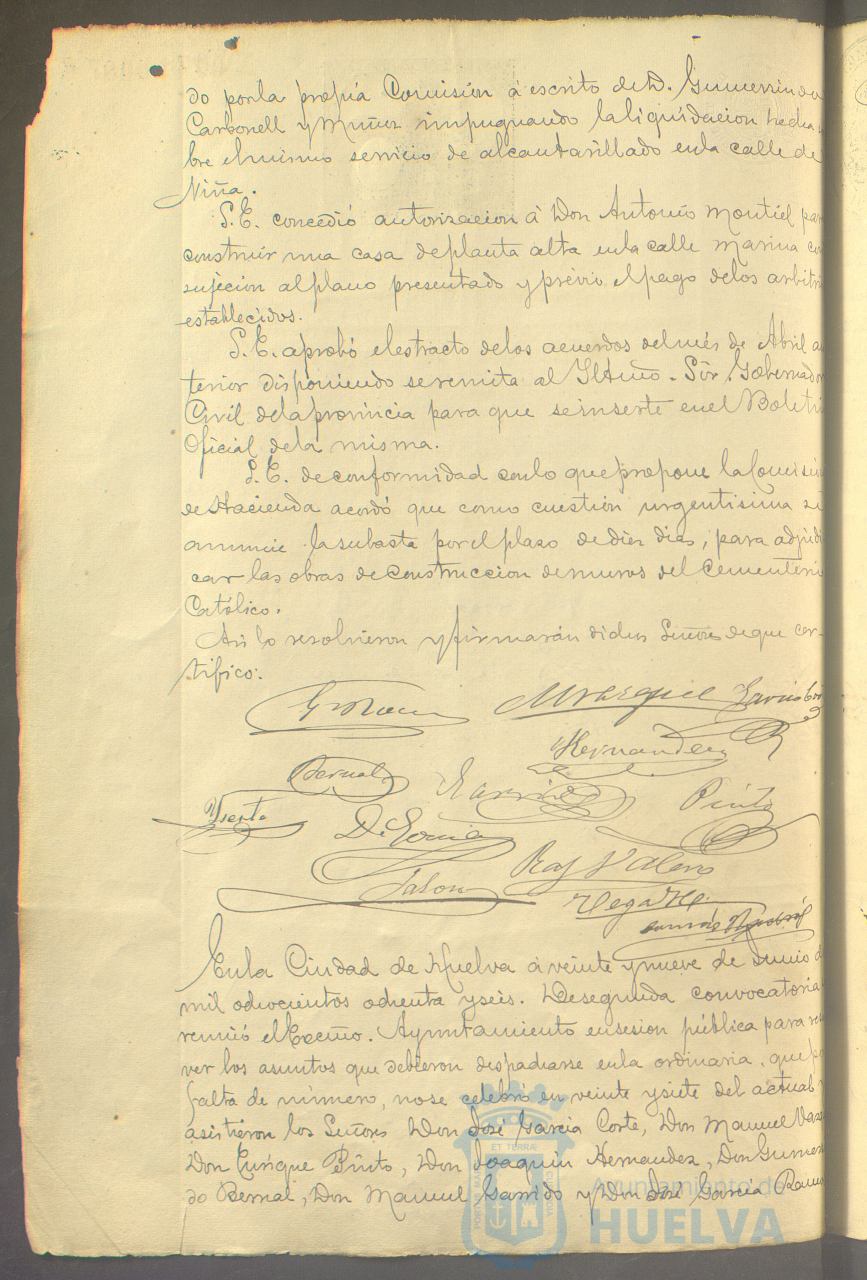 do por la propia Comisión á escrito de D. Gumersindo
Carbonell y Muñoz impugnando la liquidacion hecha
bre el mismo servicio de alcantarillado en la calle de
Niña.
S.E. concedió autorizacion á Don Antonio Montiel par
construir una casa de planta alta en la calle Marina co
sujecion al plano presentado y prévio el pago de los arbitri
establecidos.
S.E. aprobó el estracto de los acuerdos del més de Abril an
terior disponiendo se remita al Iltmo. Sor. Gobernador
Civil de la provincia para que se inserte en el Boleti
Oficial de la misma.
S.E. de conformidad con lo que propone la Comisión
de Hacienda acordó que como cuestión urgentisima se
anuncie la subasta por el plazo de diez dias, para adjudi
car las obras de construccion de muros del Cementeri
Católico.
Asi lo resolvieron y firmarán dichos Señores de que cer-
tifico.
Hernandez
Bernal Garrido Pinto
De Soria
En la Ciudad de Huelva á veinte y nueve de Junio d
mil ochocientos ochenta y seis. De segunda convocatoria
reunió el Excmo. Ayuntamiento en sesion pública para res
ver los asuntos que debieron despacharse en la ordinaria, que p
falta de número, no se celebró en veinte y siete del actual y
asistieron los Señores Don José Garcia Corte, Don Manuel Vaz
Don Enrique Pinto, Don Joaquin Hernandez, Don Gumers
do Bernal, Don Manuel Garrido y Don José Garcia Ramo
Ayuntamiento de
HUELVA